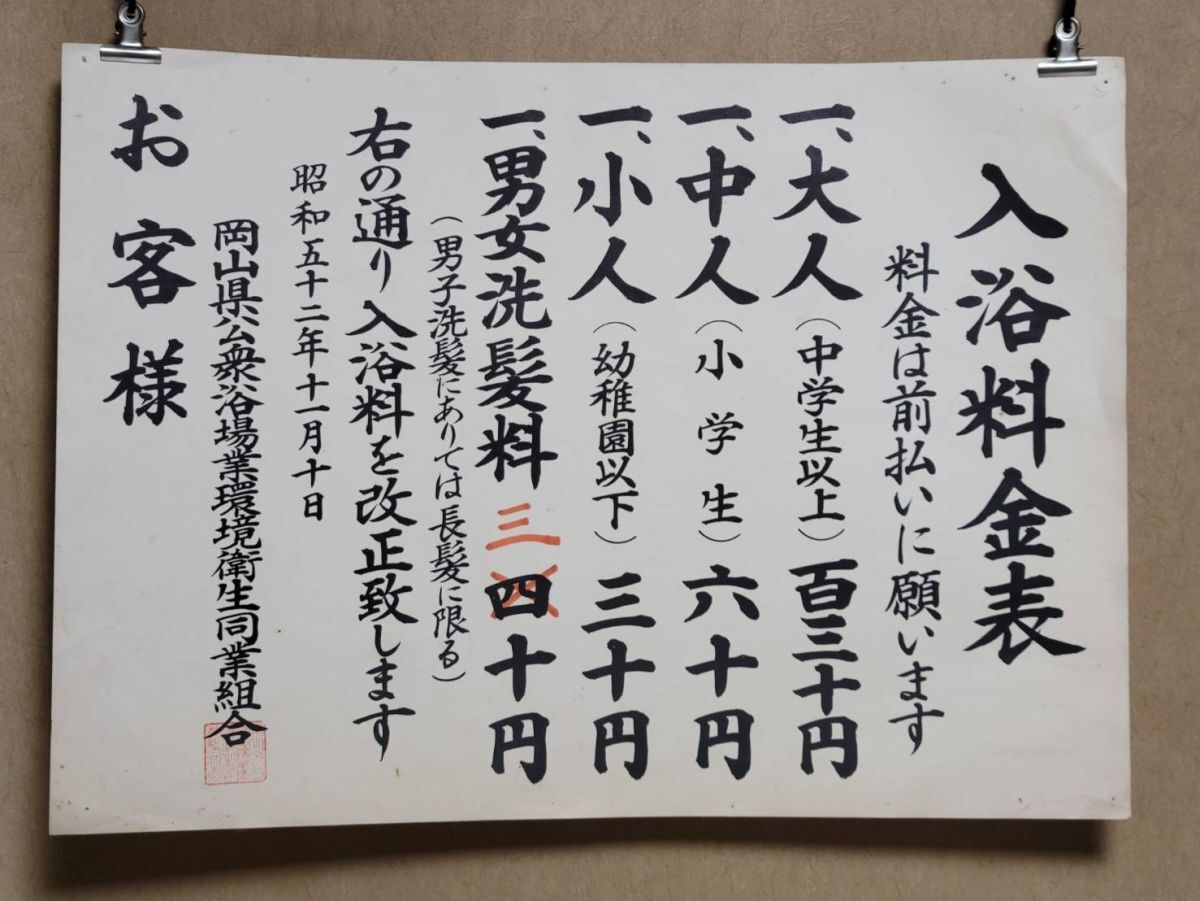 入浴料金表
料金は前払いに願います
一、大人（中学生以上）百三十円
一、中人（小学生）六十円
一、小人（幼稚園以下）三十円
一、男女洗髪料 三 四十円
（男子洗髪にありては長髪に限る）
右の通り入浴料を改正致します
昭和五十二年十一月十日
岡山県公衆浴場業環境衛生同業組合
お客様